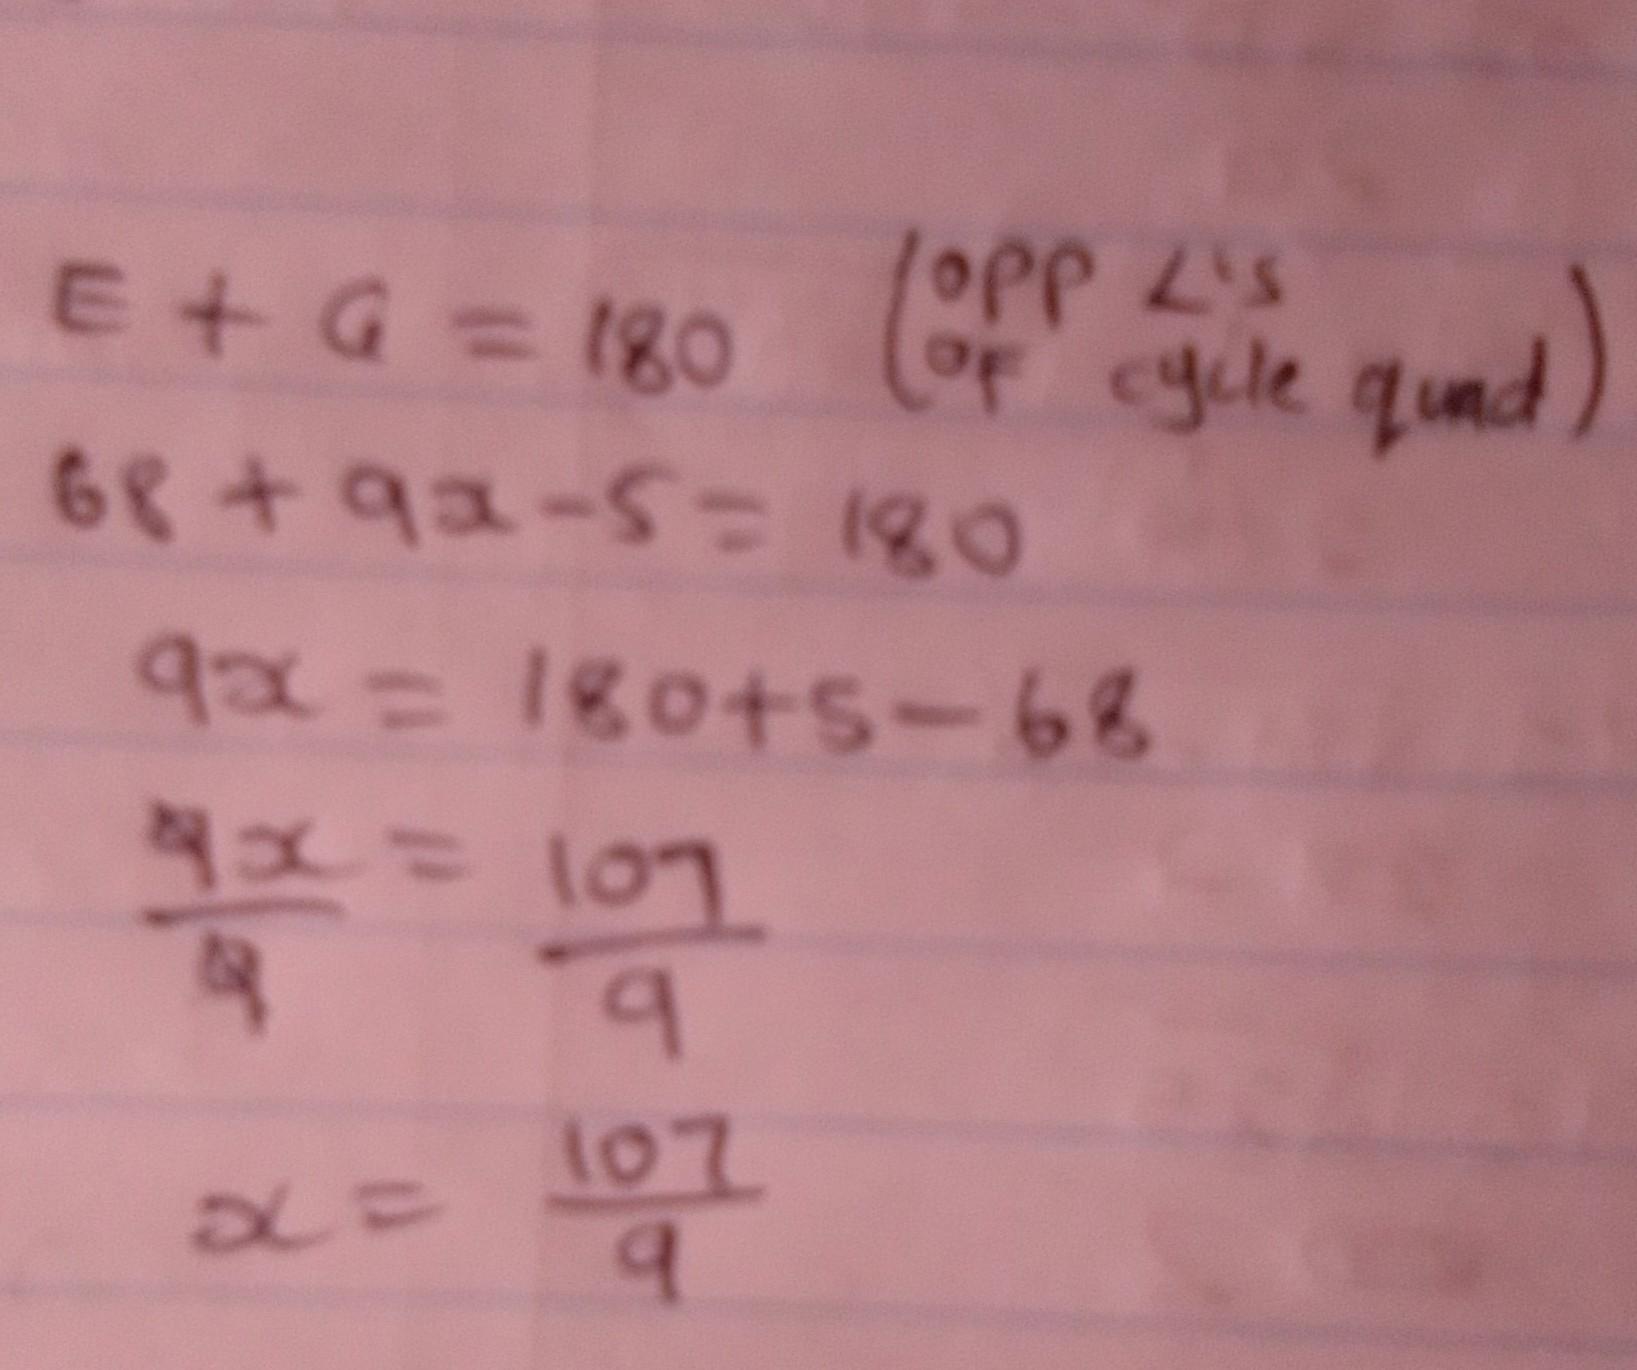 E + G = 180 (opp ∠'s of cycle quad)
68 + 9x - 5 = 180
9x = 180 + 5 - 68
9x/9 = 107/9
x = 107/9